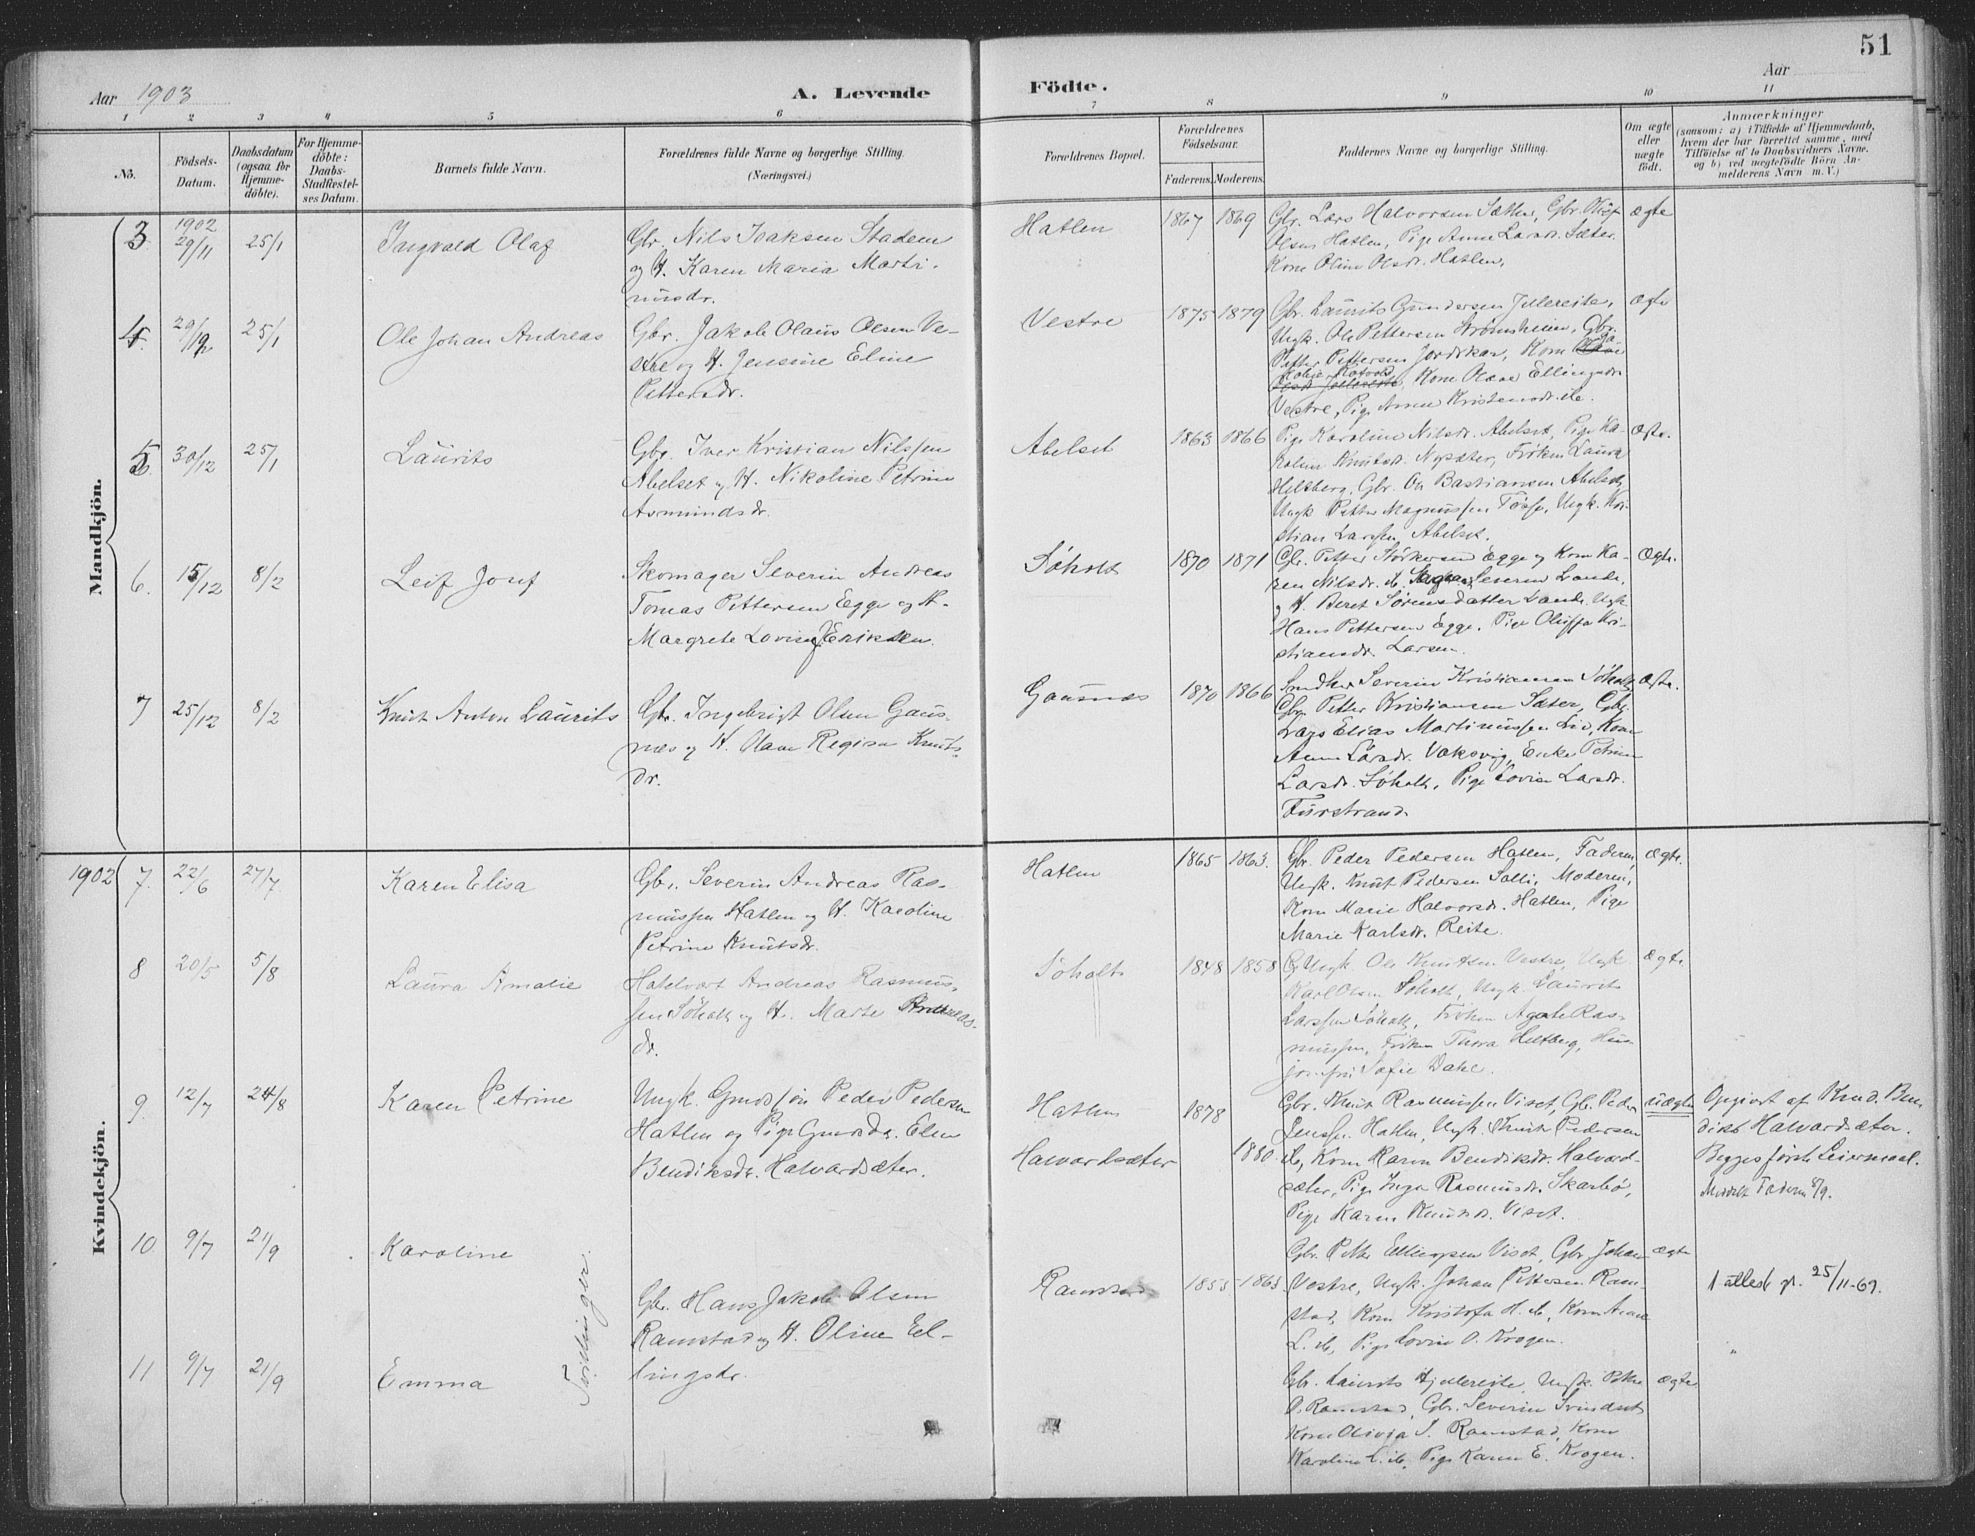 51
Aar 1903
A. Levende
Födte.
Aar
1 2 3 4 5 6 7 8 9 10 11
No.
Födsels-
Datum.
Daabsdatum
(ogsaa for
Hjemme-
döbte).
For Hjemme-
döbte:
Daabs-
Stadfæstel-
ses Datum.
Barnets fulde Navn.
Forældrenes fulde Navne og borgerlige Stilling.
(Næringsvei.)
Forældrenes Bopæl.
Forældrenes
Födselsaar.
Faderens. Moderens.
Faddernes Navne og borgerlige Stilling.
Om ægte
eller
uægte
födt.
Anmærkninger
(saasom: a) i Tilfælde af Hjemmedaab,
hvem der har forrettet samme, med
Tilföielse af to Daabsvidners Navne,
og b) ved uægtefödte Börn An-
melderens Navn m. V.)
Mandkjön.
3 1902 29/11 25/1 Ingvald Olaf
Gbr. Nils Isaksen Stadem
og H. Karen Maria Marti-
nusdr.
Hatlen 1867 1869
Gbr. Lars Halvorsen Sæther, Gbr.
Olsen Hatlen, Pige Anne Larsdr. Sæter.
Kone Oline Olsdr. Hatlen.
ægte
4. 29/12 25/1 Ole Johan Andreas
Gbr. Jakob Olaus Olsen Ve-
stre og H. Jensine Eline
Pettersdr.
Vestre 1875 1879
Gbr. Laurits Gundersen Jellereite,
Ungk. Ole Pettersen Strømsheim, Gbr.
Petter Pettersen Jordskar, Kone
Kone Olave Ellingsdr.
Vestre, Pige Anne Kristensdr. ib.
ægte
5. 30/12 25/1 Laurits
Gbr. Iver Kristian Nilssen
Abelset og H. Nikoline Petrine
Asmundsdr.
Abelset 1863 1866
Pige Karoline Nilsdr. Abelset, Pige Ka-
roline Knutsdr. Nysæter, Frøken Laura
Heltberg, Gbr. Ole Bastiansen Abelset,
Ungk. Petter Magnussen Tøsse, Ungk. Kri-
stian Larssen Abelset.
ægte.
6. 15/12 8/2 Leif Josef
Skomager Severin Andreas
Tomas Pettersen Egge og H.
Margrete Lovise Eriksen.
Søholt 1870 1871
Gbr. Petter Størkersen Egge og Kone Ka-
ren Nilsdr. ib. Severin Lande,
og H. Beret Sørensdatter Lande, Ungk.
Hans Pettersen Egge, Pige Oluffa Kri-
stiansdr. Larsen.
ægte.
7 25/12 8/2 Knut Anton Laurits
Gbr. Ingebrigt Olsen Gaus-
næs og H. Olave Regine Knuts-
dr.
Gausnæs 1870 1866
Severin Kristiansen Søholt,
Gbr. Petter Kristiansen Sæter, Gbr.
Lars Elias Martinussen Liv, Kone
Anne Larsdr. Vaksvig, Enke Petrine
Larsdr. Søholt, Pige Lovise Larsdr.
Furstrand.
ægte.
Kvindekjön.
1902 7. 22/6 27/7 Karen Elisa
Gbr. Severin Andreas Ras-
mussen Hatlen og H. Karoline
Petrine Knutsdr.
Hatlen 1865 1863.
Gbr. Peder Pedersen Hatlen, Faderen,
Ungk. Knut Pedersen Solli, Moderen,
Kone Marie Halvorsdr. Hatlen, Pige
Marie Karlsdr. Reite.
ægte.
8 20/5 5/8 Laura Amalie
Hotelvært Andreas Rasmus-
sen Søholt og H. Marte Andreas-
dr.
Søholt 1848 1858
Ungk. Ole Knutsen Vestre, Ungk.
Karl Olsen Søholt, Ungk. Laurits
Larssen Søholt, Frøken Agate Ras-
mussen, Frøken Thora Heltberg, Hus-
jomfru Sofie Dahl.
ægte
9. 12/7 24/8 Karen Petrine
Ungk. Grdssøn Peder Pedersen
Hatlen og Pige Grdsdr. Elen
Bendiksdr. Halvardsæter.
Hatlen 1878
Halvardsæter 1880.
Gbr. Knut Rasmussen Viset, Gbr. Peder
Jenssen Hatlen, Ungk. Knut Pedersen
ib., Kone Karen Bendiksdr. Halvard-
sæter, Pige Inga Rasmusdr. Skarbø,
Pige Karen Knutsdr. Viset.
uægte
Opgivet af Knud Ben-
dikt Halvardsæter.
Begges første Leiermaal.
Meddelt Faderen 8/9.
10 9/7 21/9 Karoline
Tvillinger.
Gbr. Hans Jakob Olsen
Ramstad og H. Oline El-
lingsdr.
Ramstad 1855 1863.
Gbr. Petter Ellingsen Viset, Gbr. Johan
Vestre, Ungk. Johan Pettersen Ram-
stad, Kone Kristofa H. ib., Kone Anne
L. ib., Pige Lovise O. Krogen.
ægte
1 attest gl. 25/11-69.
"
11 9/7 21/9 Emma
Gbr. Laurits Hjellereite, Ungk. Petter
O. Ramstad, Gbr. Severin
Kone Olivia S. Ramstad, Kone
Karoline L. ib., Pige Karen E. Krogen.
ægte